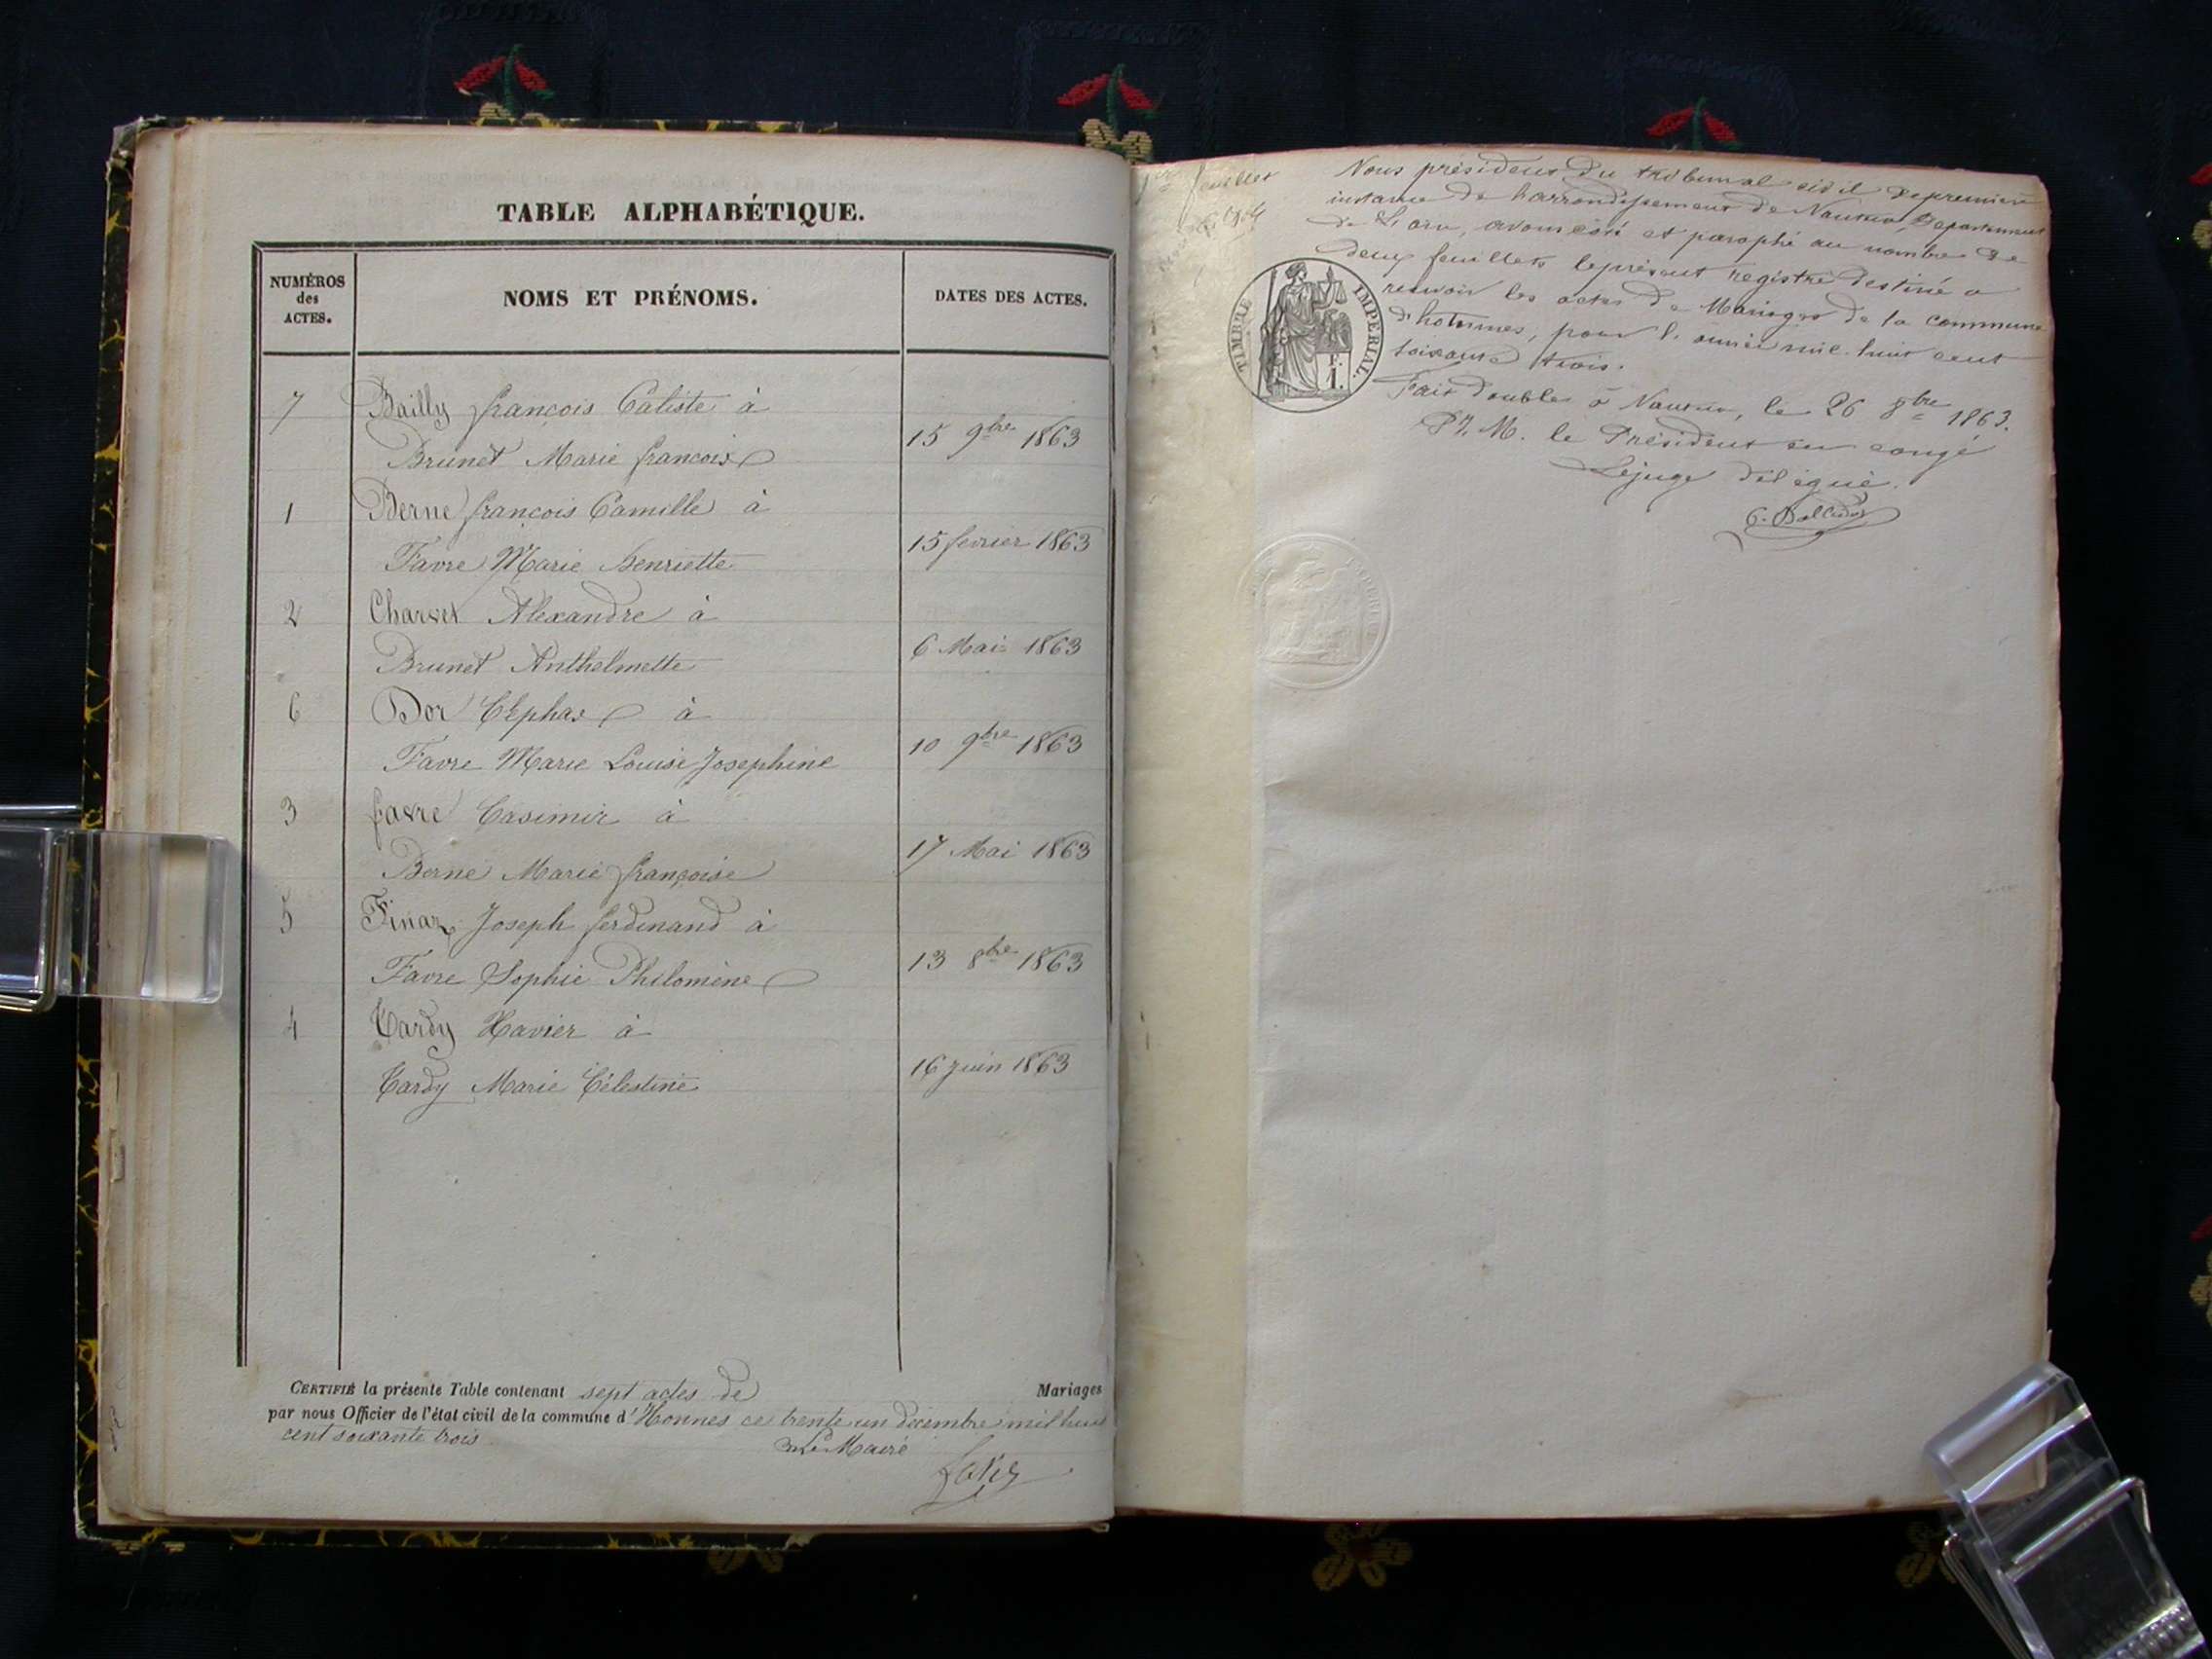 TABLE ALPHABÉTIQUE.
NUMÉROS des ACTES.
NOMS ET PRÉNOMS.
DATES DES ACTES.
7 Bailly françois Caliste à
Brunet Marie francoise 15 9bre 1863
1 Berne françois Camille à
Favre Marie henriette 15 fevrier 1863
2 Charvet Alexandre à
Brunet Anthelmette 6 Mai 1863
6 Dor Céphas à
Favre Marie Louise Josephine 10 9bre 1863
3 favre Casimir à
Berne Marie françoise 17 Mai 1863
5 Finaz Joseph ferdinand à
Favre Sophie Philomène 13 8bre 1863
4 Tardy Xavier à
Tardy Marie Célestine 16 juin 1863
CERTIFIÉ la présente Table contenant sept actes de Mariages
par nous Officier de l'état civil de la commune d'Honnes ce trente un décembre mil huit
cent soixante trois
Le Maire
1er feuillet
Nous président du tribunal civil de première
instance de l'arrondissement de Nantua, Département
de l'ain, avons coté et paraphé au nombre de
deux feuillets le présent registre destiné a
recevoir les actes de Mariages de la commune
d'hotonnes, pour l'année mil huit cent
soixante trois.
Fait double à Nantua, le 26 8bre 1863.
Pr. M. le Président en congé
Le juge délégué.
TIMBRE IMPÉRIAL.
F.
1.